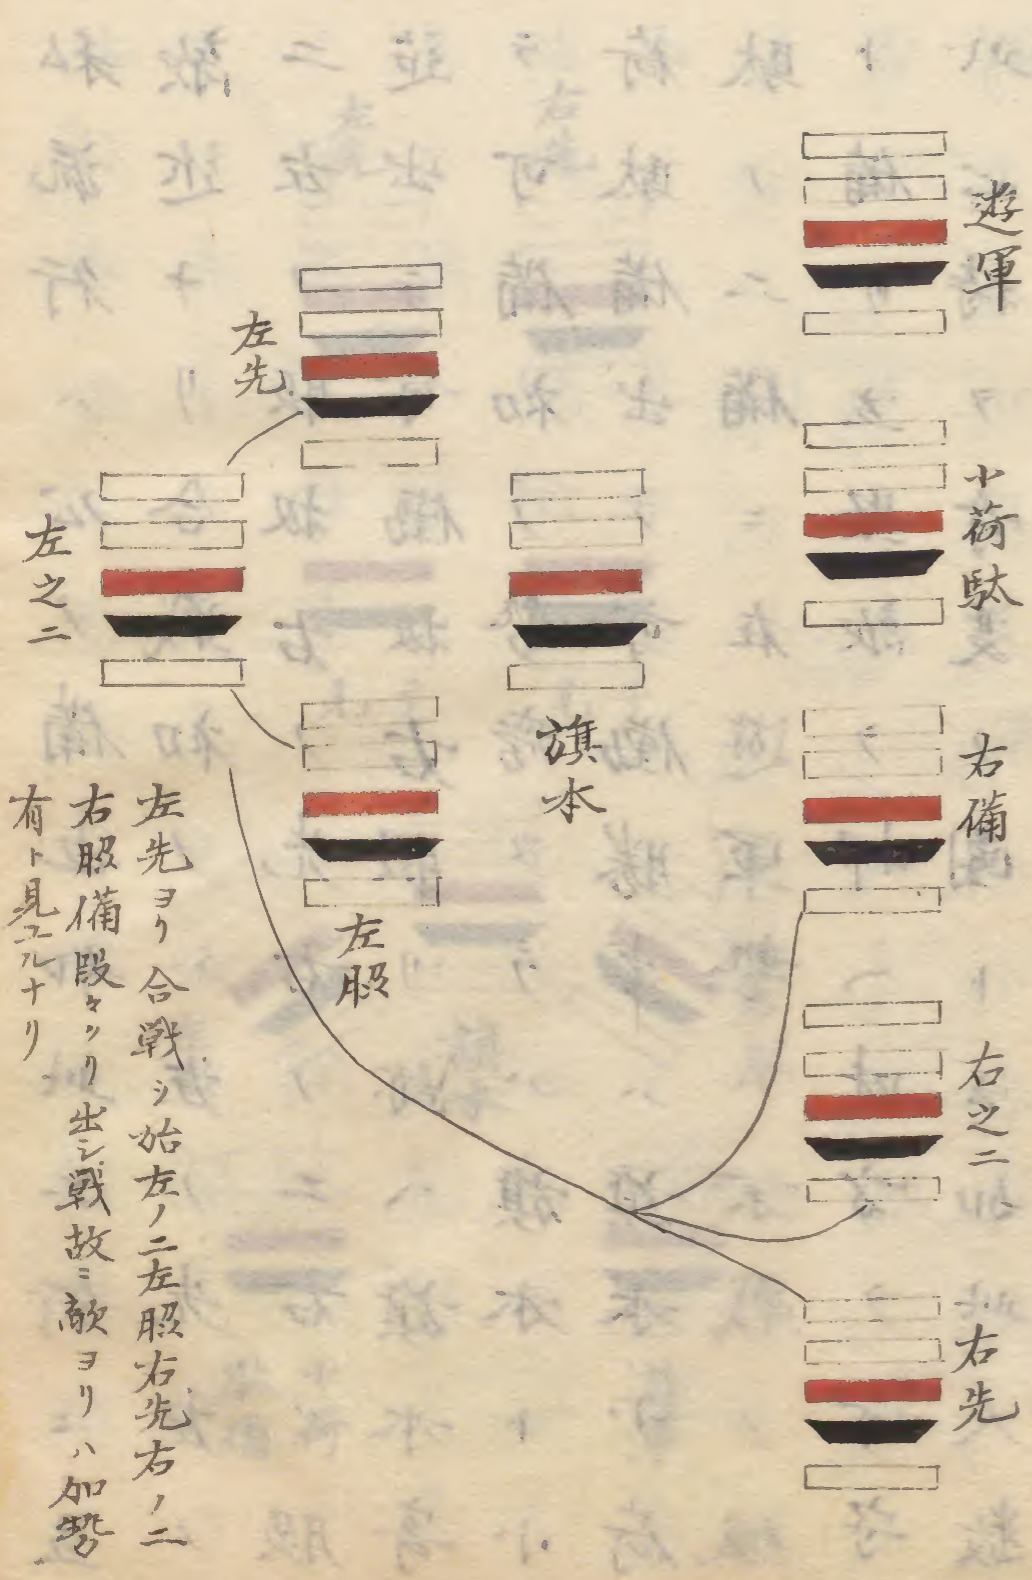 遊軍
小荷駄
右備
右之二
右先
旗本
左先
左脇
左之二
左先ヨリ合戦シ始左ノ二左脇右先右ノ二
右脇備段々クリ出シ戦故ニ敵ヨリハ加勢
有ト見ユルナリ